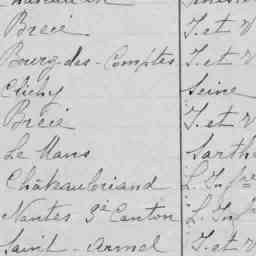 Breié I. et V
Bourg-des-Comptes I. et V
Clichy Seine
Breié I. et V
Le Mans Sarth
Châteaubriand L. Infre
Nantes 3e Canton L. Inf
Saint-Armel I. et V